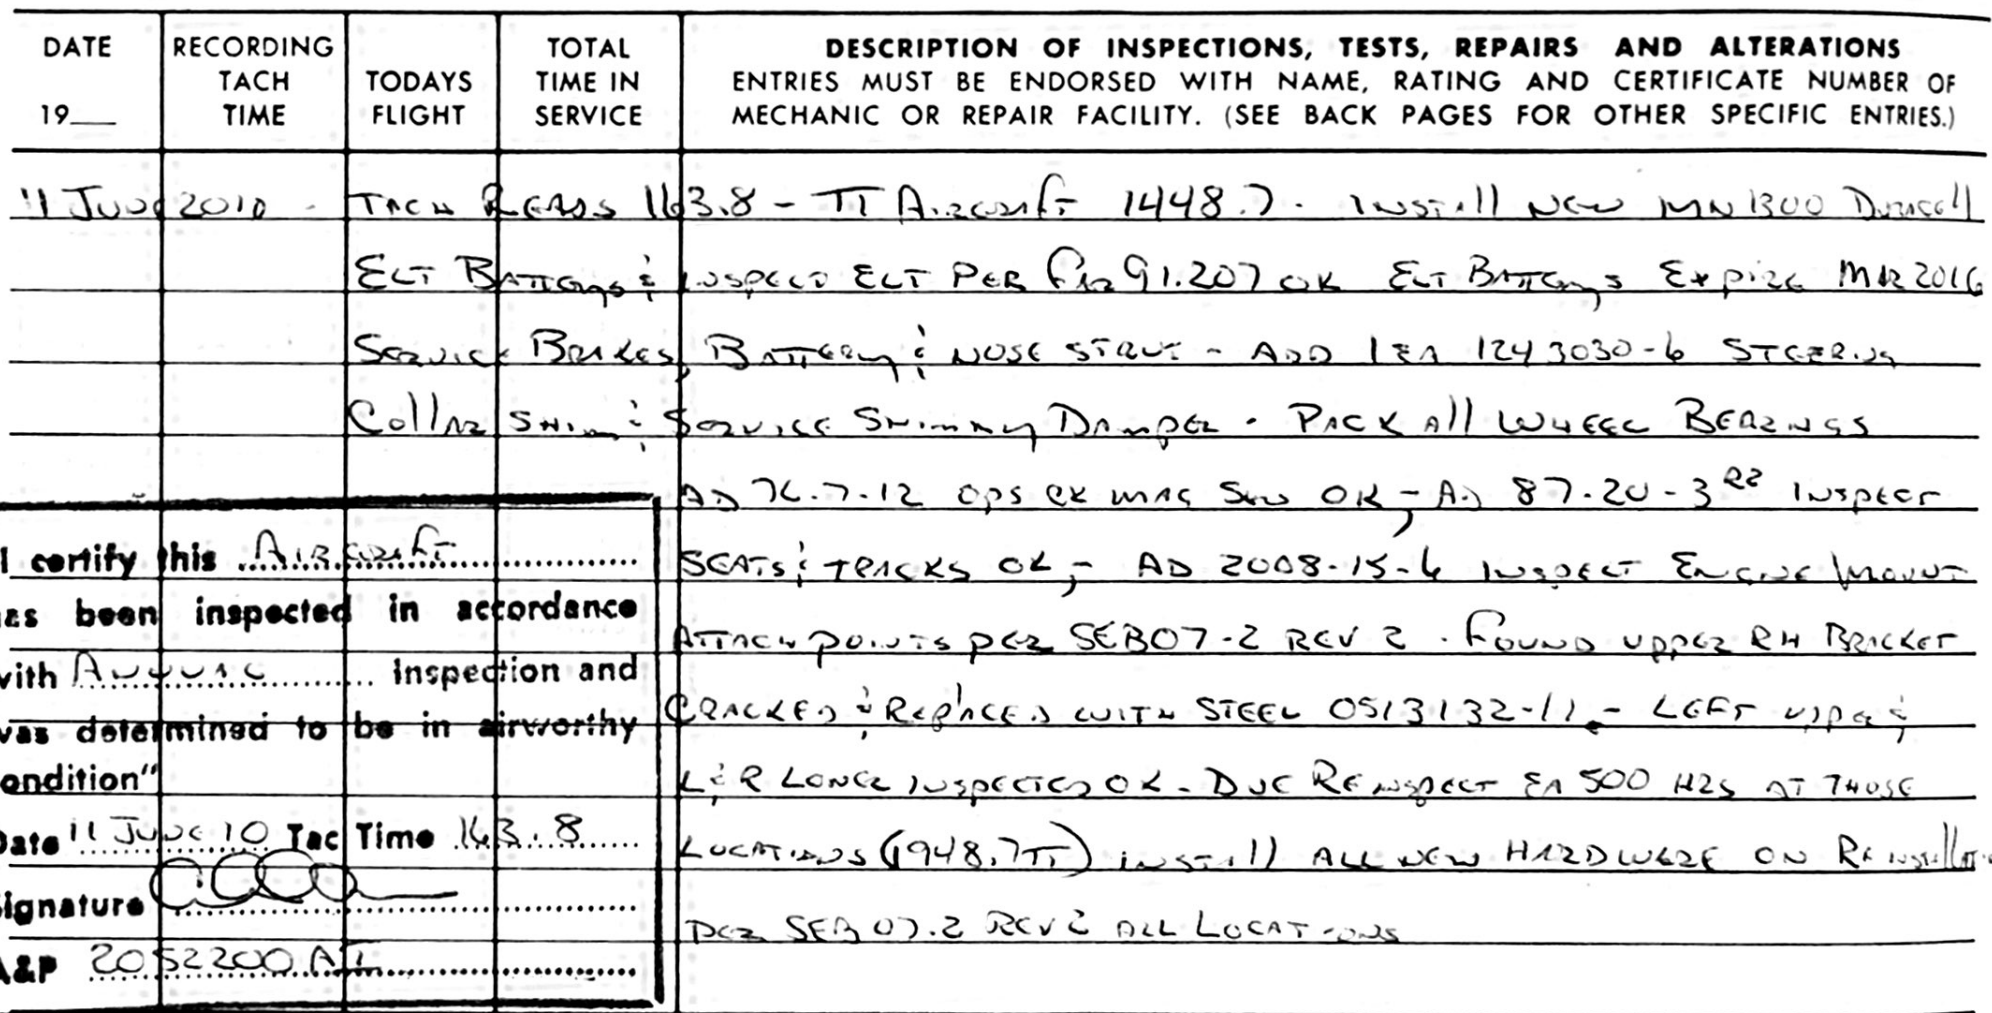 DATE
19__
RECORDING
TACH
TIME
TODAYS
FLIGHT
TOTAL
TIME IN
SERVICE
DESCRIPTION OF INSPECTIONS, TESTS, REPAIRS AND ALTERATIONS
ENTRIES MUST BE ENDORSED WITH NAME, RATING AND CERTIFICATE NUMBER OF
MECHANIC OR REPAIR FACILITY. (SEE BACK PAGES FOR OTHER SPECIFIC ENTRIES.)
11 June 2010 - TACH READS 163.8 - TT Aircraft 1448.7 - INSTALL NEW MN1300 Duracell
ELT Batterys & INSPECT ELT PER FAR 91.207 OK ELT Batterys Expire MAR 2016
Service Brakes, Battery & NOSE STRUT - ADD 1 EA 1243030-6 STEERING
Collar Shim & Service Shimmy Damper - PACK All WHEEL BEARINGS
AD 76-7-12 OPS CK MAG SW OK, - AD 87-20-3 R2 INSPECT
SEATS & TRACKS OK, - AD 2008-15-6 INSPECT ENGINE MOUNT
ATTACH POINTS PER SEB07-2 REV 2. FOUND UPPER RH BRACKET
CRACKED & REPLACED WITH STEEL 0513132-11 - LEFT UPPER &
L & R LOWER INSPECTED OK - DUE REINSPECT EA 500 HRS AT THOSE
LOCATIONS (1948.7TT) INSTALL ALL NEW HARDWARE ON REINSTALLATION
PER SEB 07-2 REV 2 ALL LOCATIONS
I certify this Aircraft
as been inspected in accordance
with Annual Inspection and
was determined to be in airworthy
ondition"
Date 11 JUNE 10 Tac Time 163.8
Signature
A&P 2052200 AI